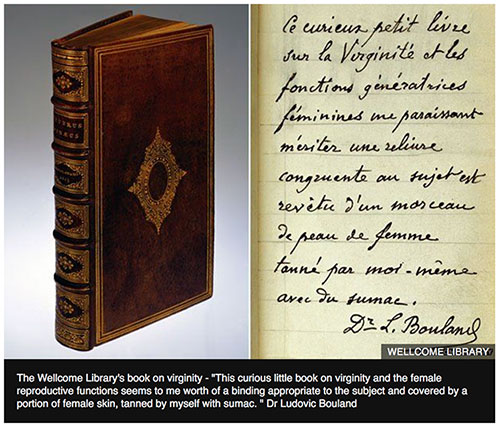 Ce curieux petit livre
sur la Virginité et les
fonctions génératrices
féminines me paraissant
mériter une reliure
congruente au sujet est
revêtu d'un morceau
de peau de femme
tanné par moi-même
avec du sumac.
Dr L. Bouland
WELLCOME LIBRARY
The Wellcome Library's book on virginity - "This curious little book on virginity and the female
reproductive functions seems to me worth of a binding appropriate to the subject and covered by a
portion of female skin, tanned by myself with sumac. " Dr Ludovic Bouland